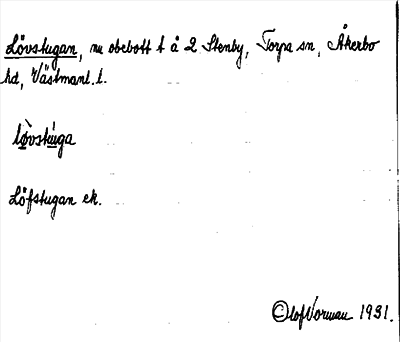 Lövstugan, nu obebott t å 2 Stenby, Torpa sn, Åkerbo
hd, Västmanl. l.
lø̀vstúga
Löfstugan ek.
Olof Vorman 1931.